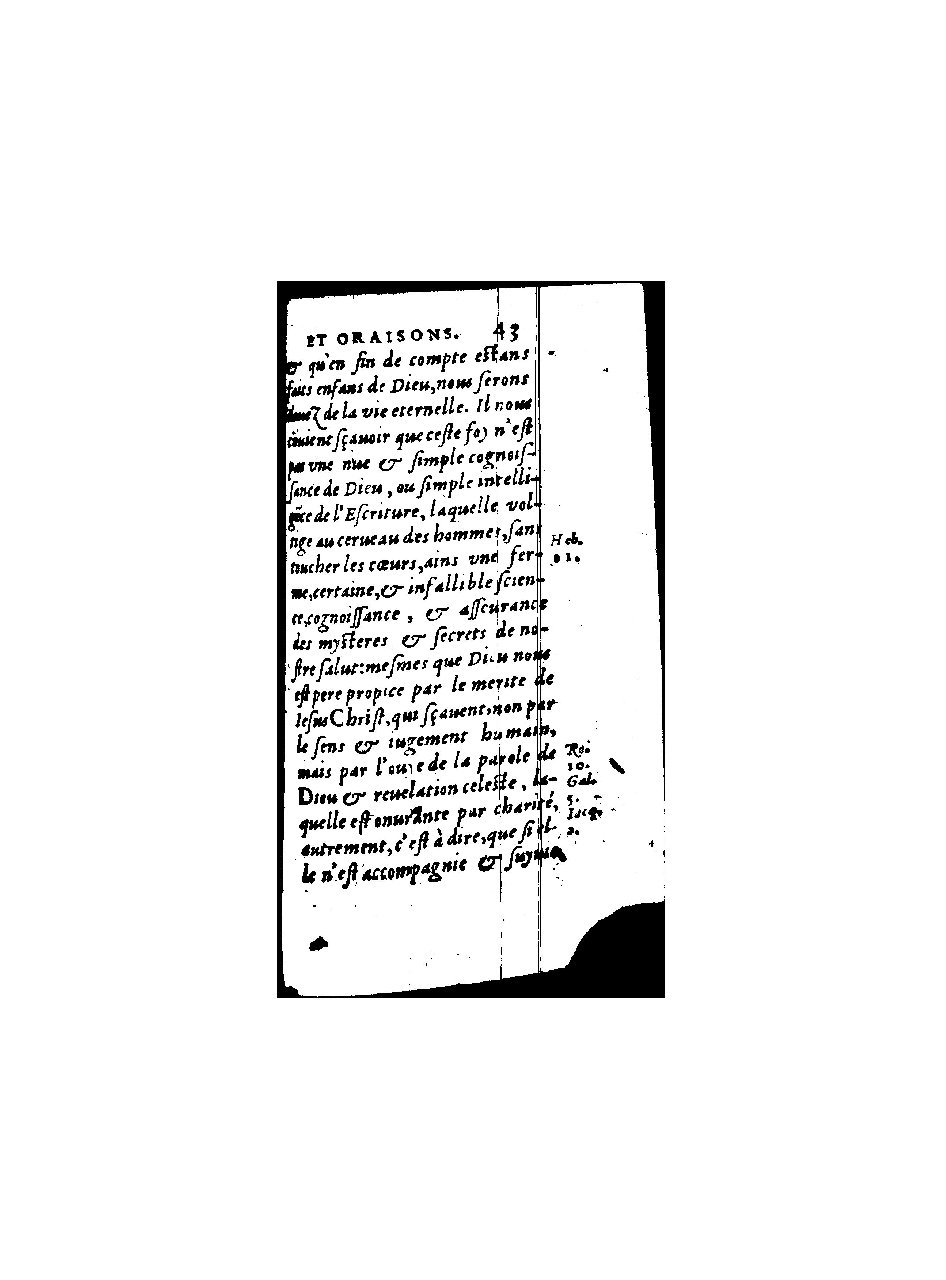 ET ORAISONS. 43
& qu'en fin de compte estans
faits enfans de Dieu, nous serons
douez de la vie eternelle. Il nous
conuient sçauoir que ceste foy n'est
pas vne nue & simple cognois-
sance de Dieu, ou simple intelli-
gẽce de l'Escriture, laquelle vol-
tige au cerueau des hommes, sans
toucher les cœurs, ains vne fer-
me, certaine, & infallible scien-
ce, cognoissance, & asseurance
des mysteres & secrets de no-
stre salut: mesmes que Dieu nous
est pere propice par le merite de
Iesus Christ, qui sçauent, non par
le sens & iugement humain,
mais par l'ouye de la parole de
Dieu & reuelation celeste, la-
quelle est onurante par charité,
autrement, c'est à dire, que si el-
le n'est accompagnie & suyuie
Heb.
01.
Ro.
10.
Gal.
5.
Iacq.
2.